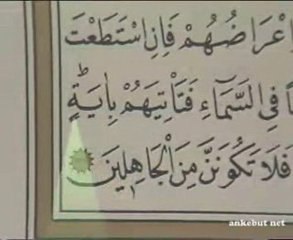 اِعْرَاضُهُمْ فَاِنِ اسْتَطَعْتَ
فِي السَّمَٓاءِ فَتَاْتِيَهُمْ بِاٰيَةٍۜ
فَلَا تَكُونَنَّ مِنَ الْجَاهِل۪ينَ
ankebut net